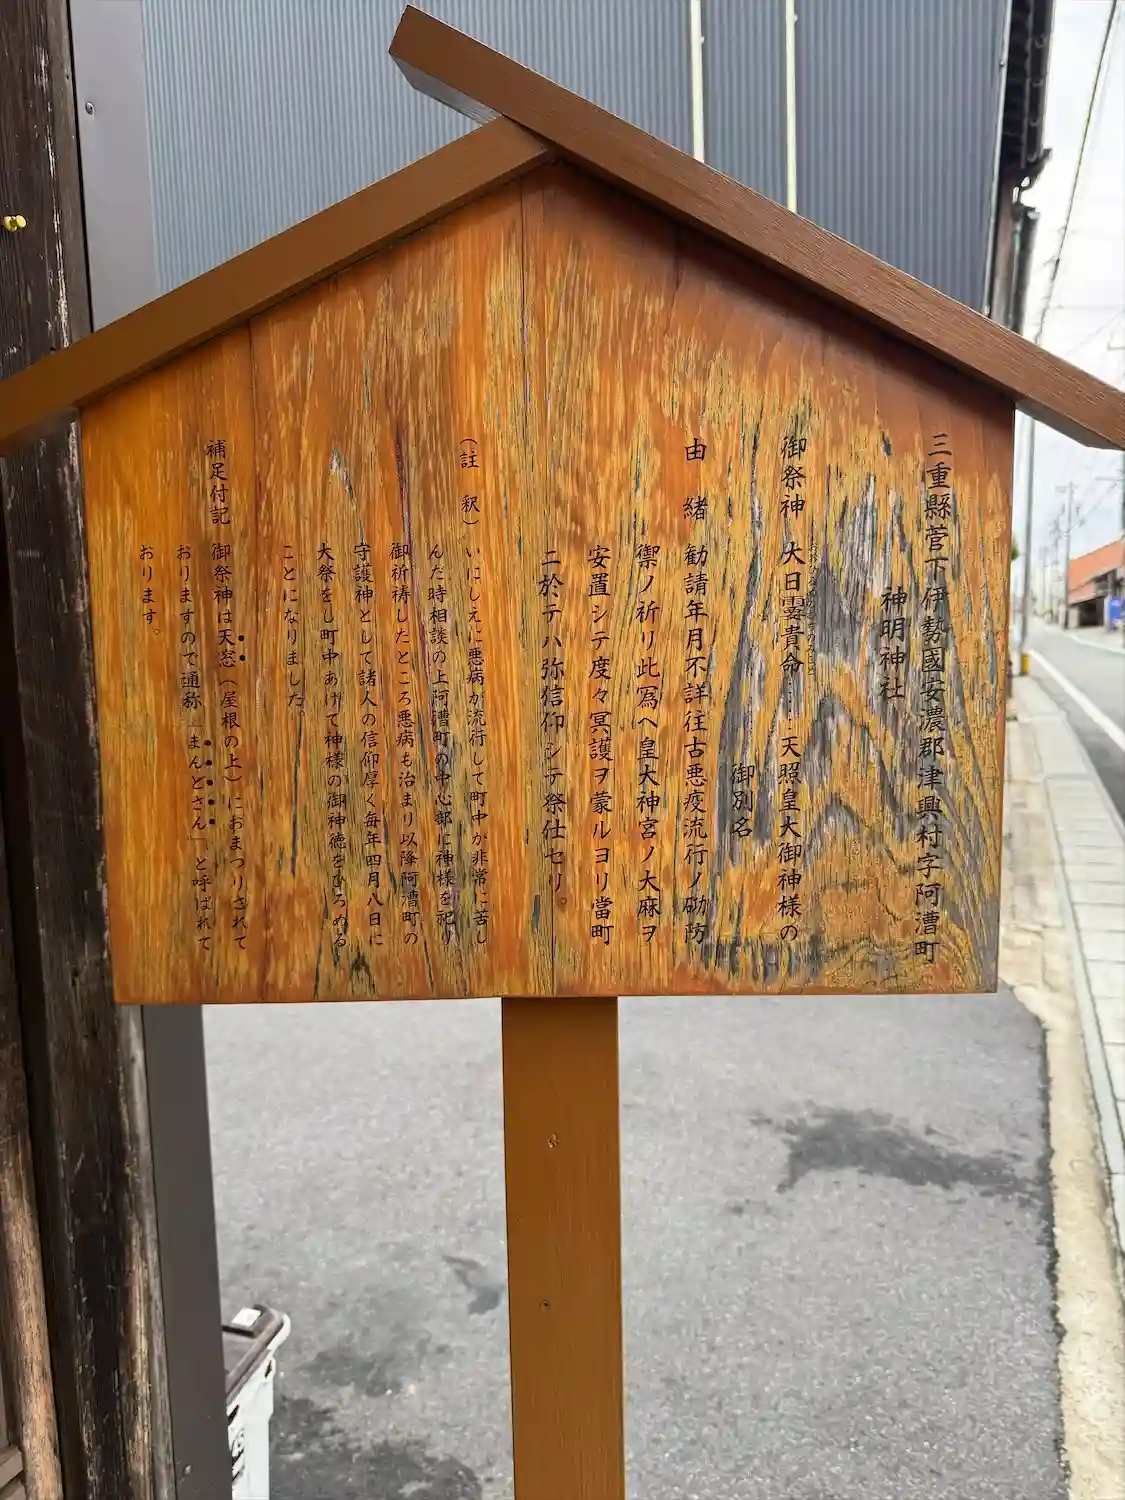 三重縣菅下伊勢國安濃郡津興村字阿漕町
神明神社
御祭神 大日孁貴命……天照皇大御神様の
御別名
由緒 勧請年月不詳往古悪疫流行ノ砌防
禦ノ祈リ此寫ヘ皇大神宮ノ大麻ヲ
安置シテ度々冥護ヲ蒙ルヨリ當町
ニ於テハ弥信仰シテ祭仕セリ。
(註釈) いにしえに悪病が流行して町中が非常に苦し
んだ時相談の上阿漕町の中心部に神様を祀り
御祈祷したところ悪病も治まり以降阿漕町の
守護神として諸人の信仰厚く毎年四月八日に
大祭をし町中あげて神様の御神徳をひろめる
ことになりました。
補足付記 御祭神は天窓(屋根の上)におまつりされて
おりますので通称「まんどさん」と呼ばれて
おります。